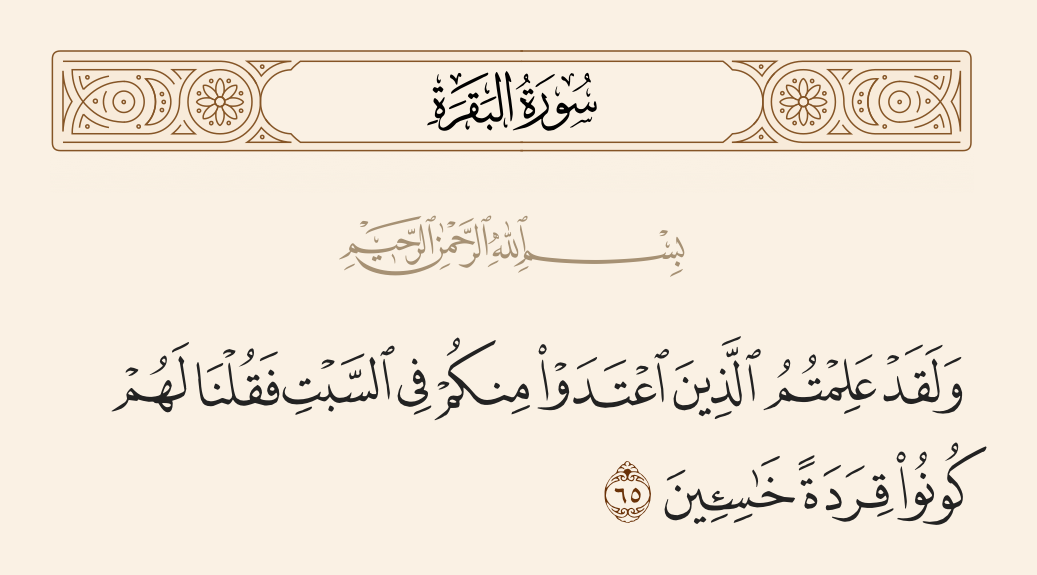 سُورَةُ البَقَرَةِ
بِسْمِ ٱللَّهِ ٱلرَّحْمَٰنِ ٱلرَّحِيمِ
وَلَقَدْ عَلِمْتُمُ ٱلَّذِينَ ٱعْتَدَوْا۟ مِنكُمْ فِى ٱلسَّبْتِ فَقُلْنَا لَهُمْ
كُونُوا۟ قِرَدَةً خَـٰسِـِٔينَ ٦٥